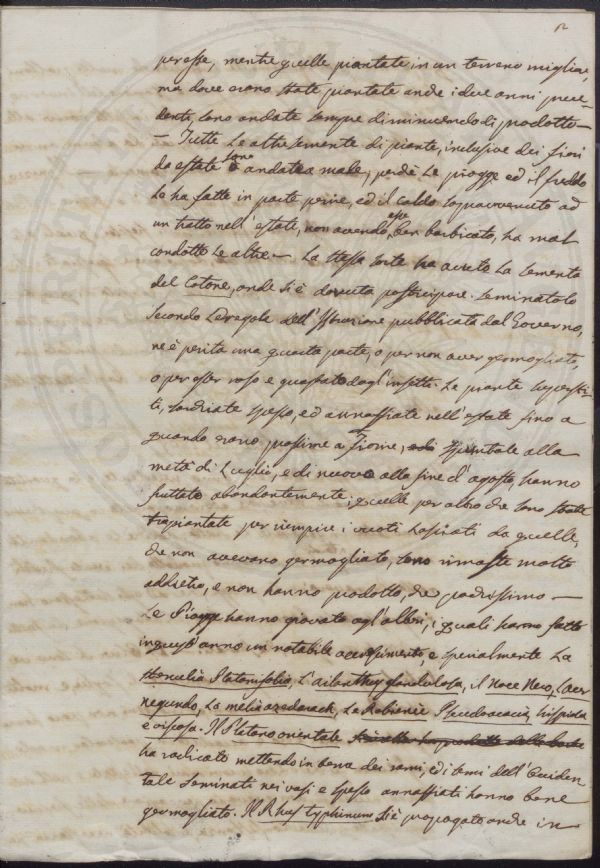 peresse, mentre quelle piantate in un terreno migliore
ma dove erano state piantate anche i due anni prece-
denti, sono andate sempre diminuendo di prodotto —
— Tutte Le altre semente di piante, inclusive dei fiori
da estate sono andate a male, perchè Le piogge ed il freddo
Le ha fatte in parte perire, ed il caldo sopravvenuto ad
un tratto nell'estate, non avendo esse ben barbicato, ha mal
condotto Le altre — La stessa sorte ha avuto La sementa
del Cotone, onde si è dovuta posticipare. Seminatolo
secondo Le regole dell'Istruzione pubblicata dal Governo,
ne è perita una quarta parte, o per non aver germogliato,
o per esser roso e guastato dagl'insetti. Le piante
ti, sarchiate spesso, ed annaffiate nell'estate fino a
quando erano prossime a fiorire, spuntate alla
metà di Luglio, e di nuovo alla fine d'agosto, hanno
fruttato abondantemente; quelle per altro che sono state
trapiantate per riempire i vuoti Lasciati da quelle,
che non avevano germogliato, sono rimaste molto
addietro, e non hanno prodotto, che pochissimo —
Le Piogge hanno giovato agl'alberi, i quali hanno fatto
in quest'anno un notabile accrescimento, e specialmente La
Sterculia Platanifolia, L'ailanthus glandulosa, il Noce Nero, L'acer
negundo, La melia azedarach, Le Robinie Pseudoacacia, hispida
e viscosa. Il Platano orientale
ha radicato mettendo in terra dei rami, ed i semi dell'Occiden-
tale seminati nei vasi e spesso annaffiati hanno bene
germogliato. Il Rhus typhinum si è propagato anche in